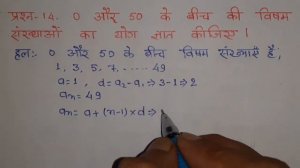 प्रश्न-14. 0 और 50 के बीच की विषम
संख्याओं का योग ज्ञात कीजिए।
हलः 0 और 50 के बीच विषम संख्याएँ हैं,
1, 3, 5, 7, ...... 49
a = 1, d = a₂-a₁ ⇒ 3-1 ⇒ 2
aₙ = 49
aₙ = a + (n-1)×d ⇒